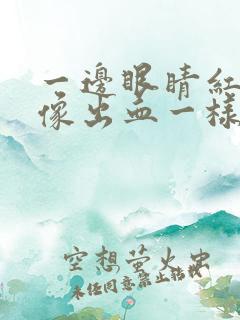 一邊眼睛紅
像出血一樣
空想萤火虫
未经同意禁止转载